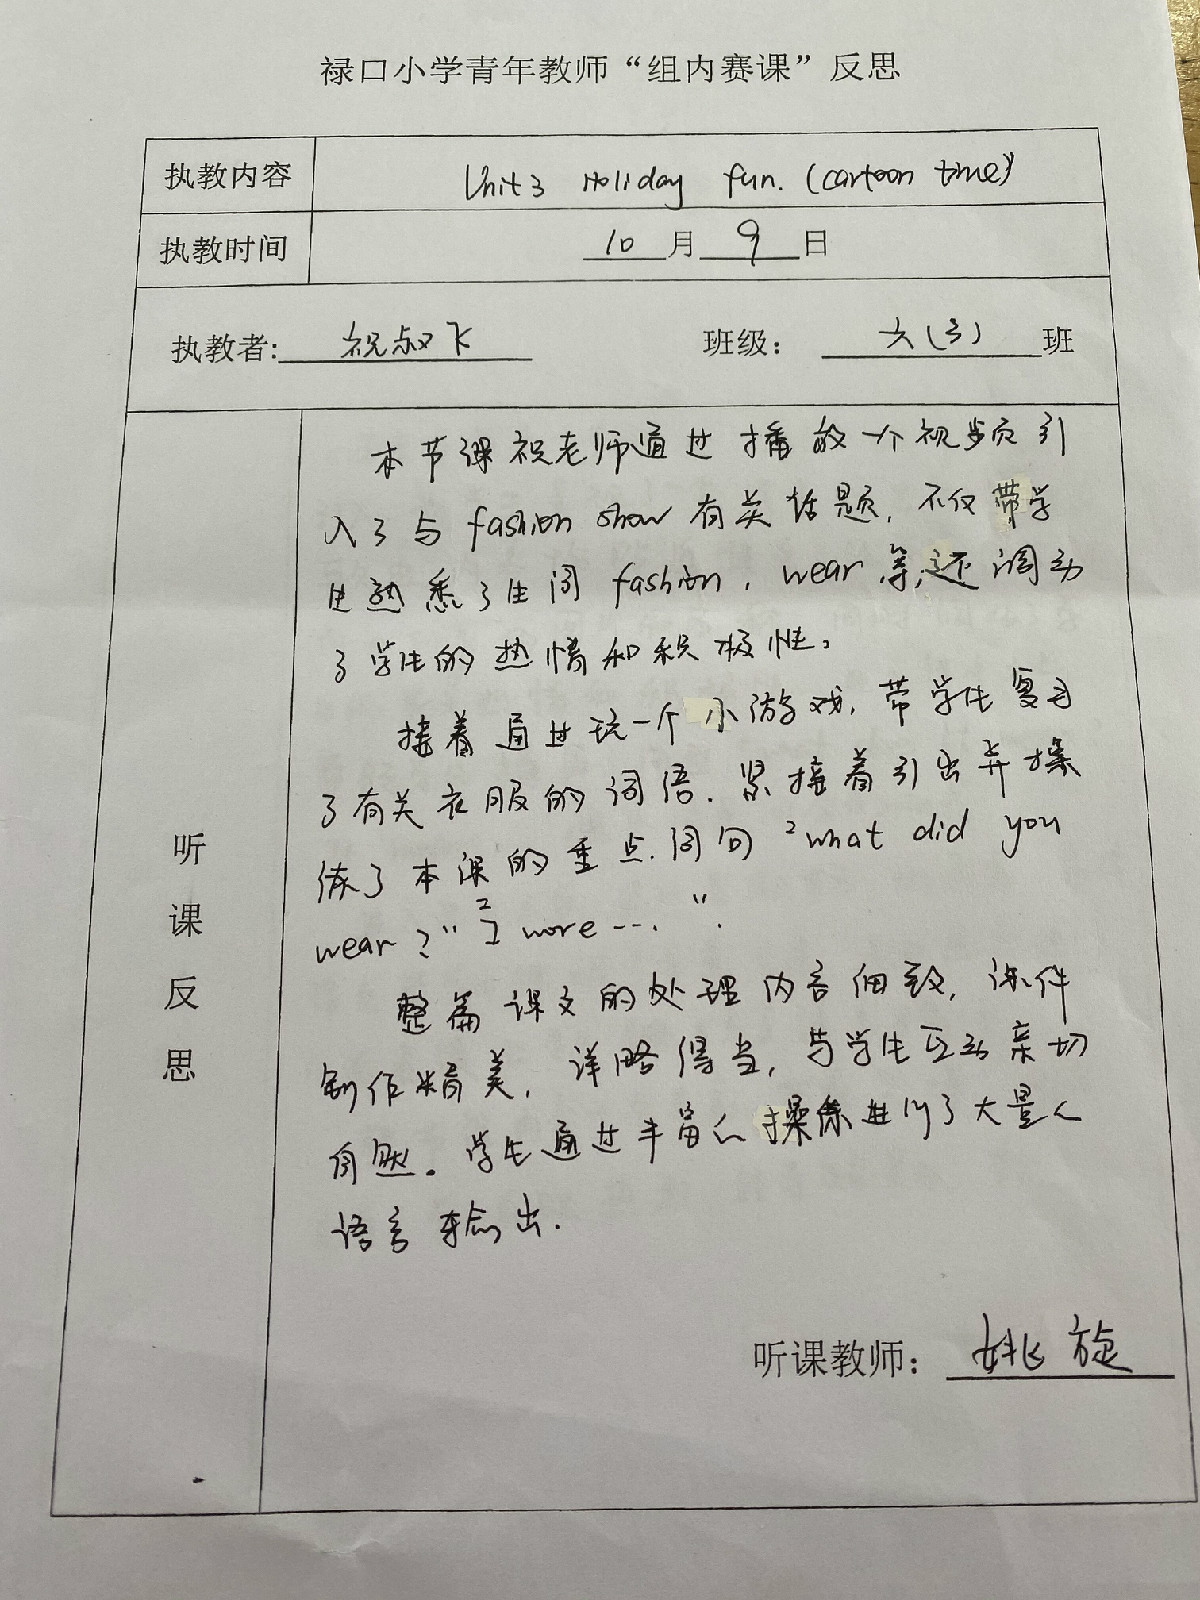 禄口小学青年教师“组内赛课”反思
执教内容 Unit3 Holiday fun. (cartoon time)
执教时间 10月9日
执教者: 祝叔飞 班级: 六(3)班
听课反思
本节课祝老师通过播放一个视频引
入了与 fashion show 有关话题,不仅带学
生熟悉了生词 fashion, wear 等,还调动
了学生的热情和积极性。
接着通过玩一个小游戏,带学生复习
了有关衣服的词语.紧接着引出并操
练了本课的重点词句“what did you
wear?” “I wore ....”.
整篇课文的处理内容细致,课件
制作精美,详略得当,与学生互动亲切
自然。学生通过丰富的操练进行了大量的
语言输出.
听课教师: 姚旋